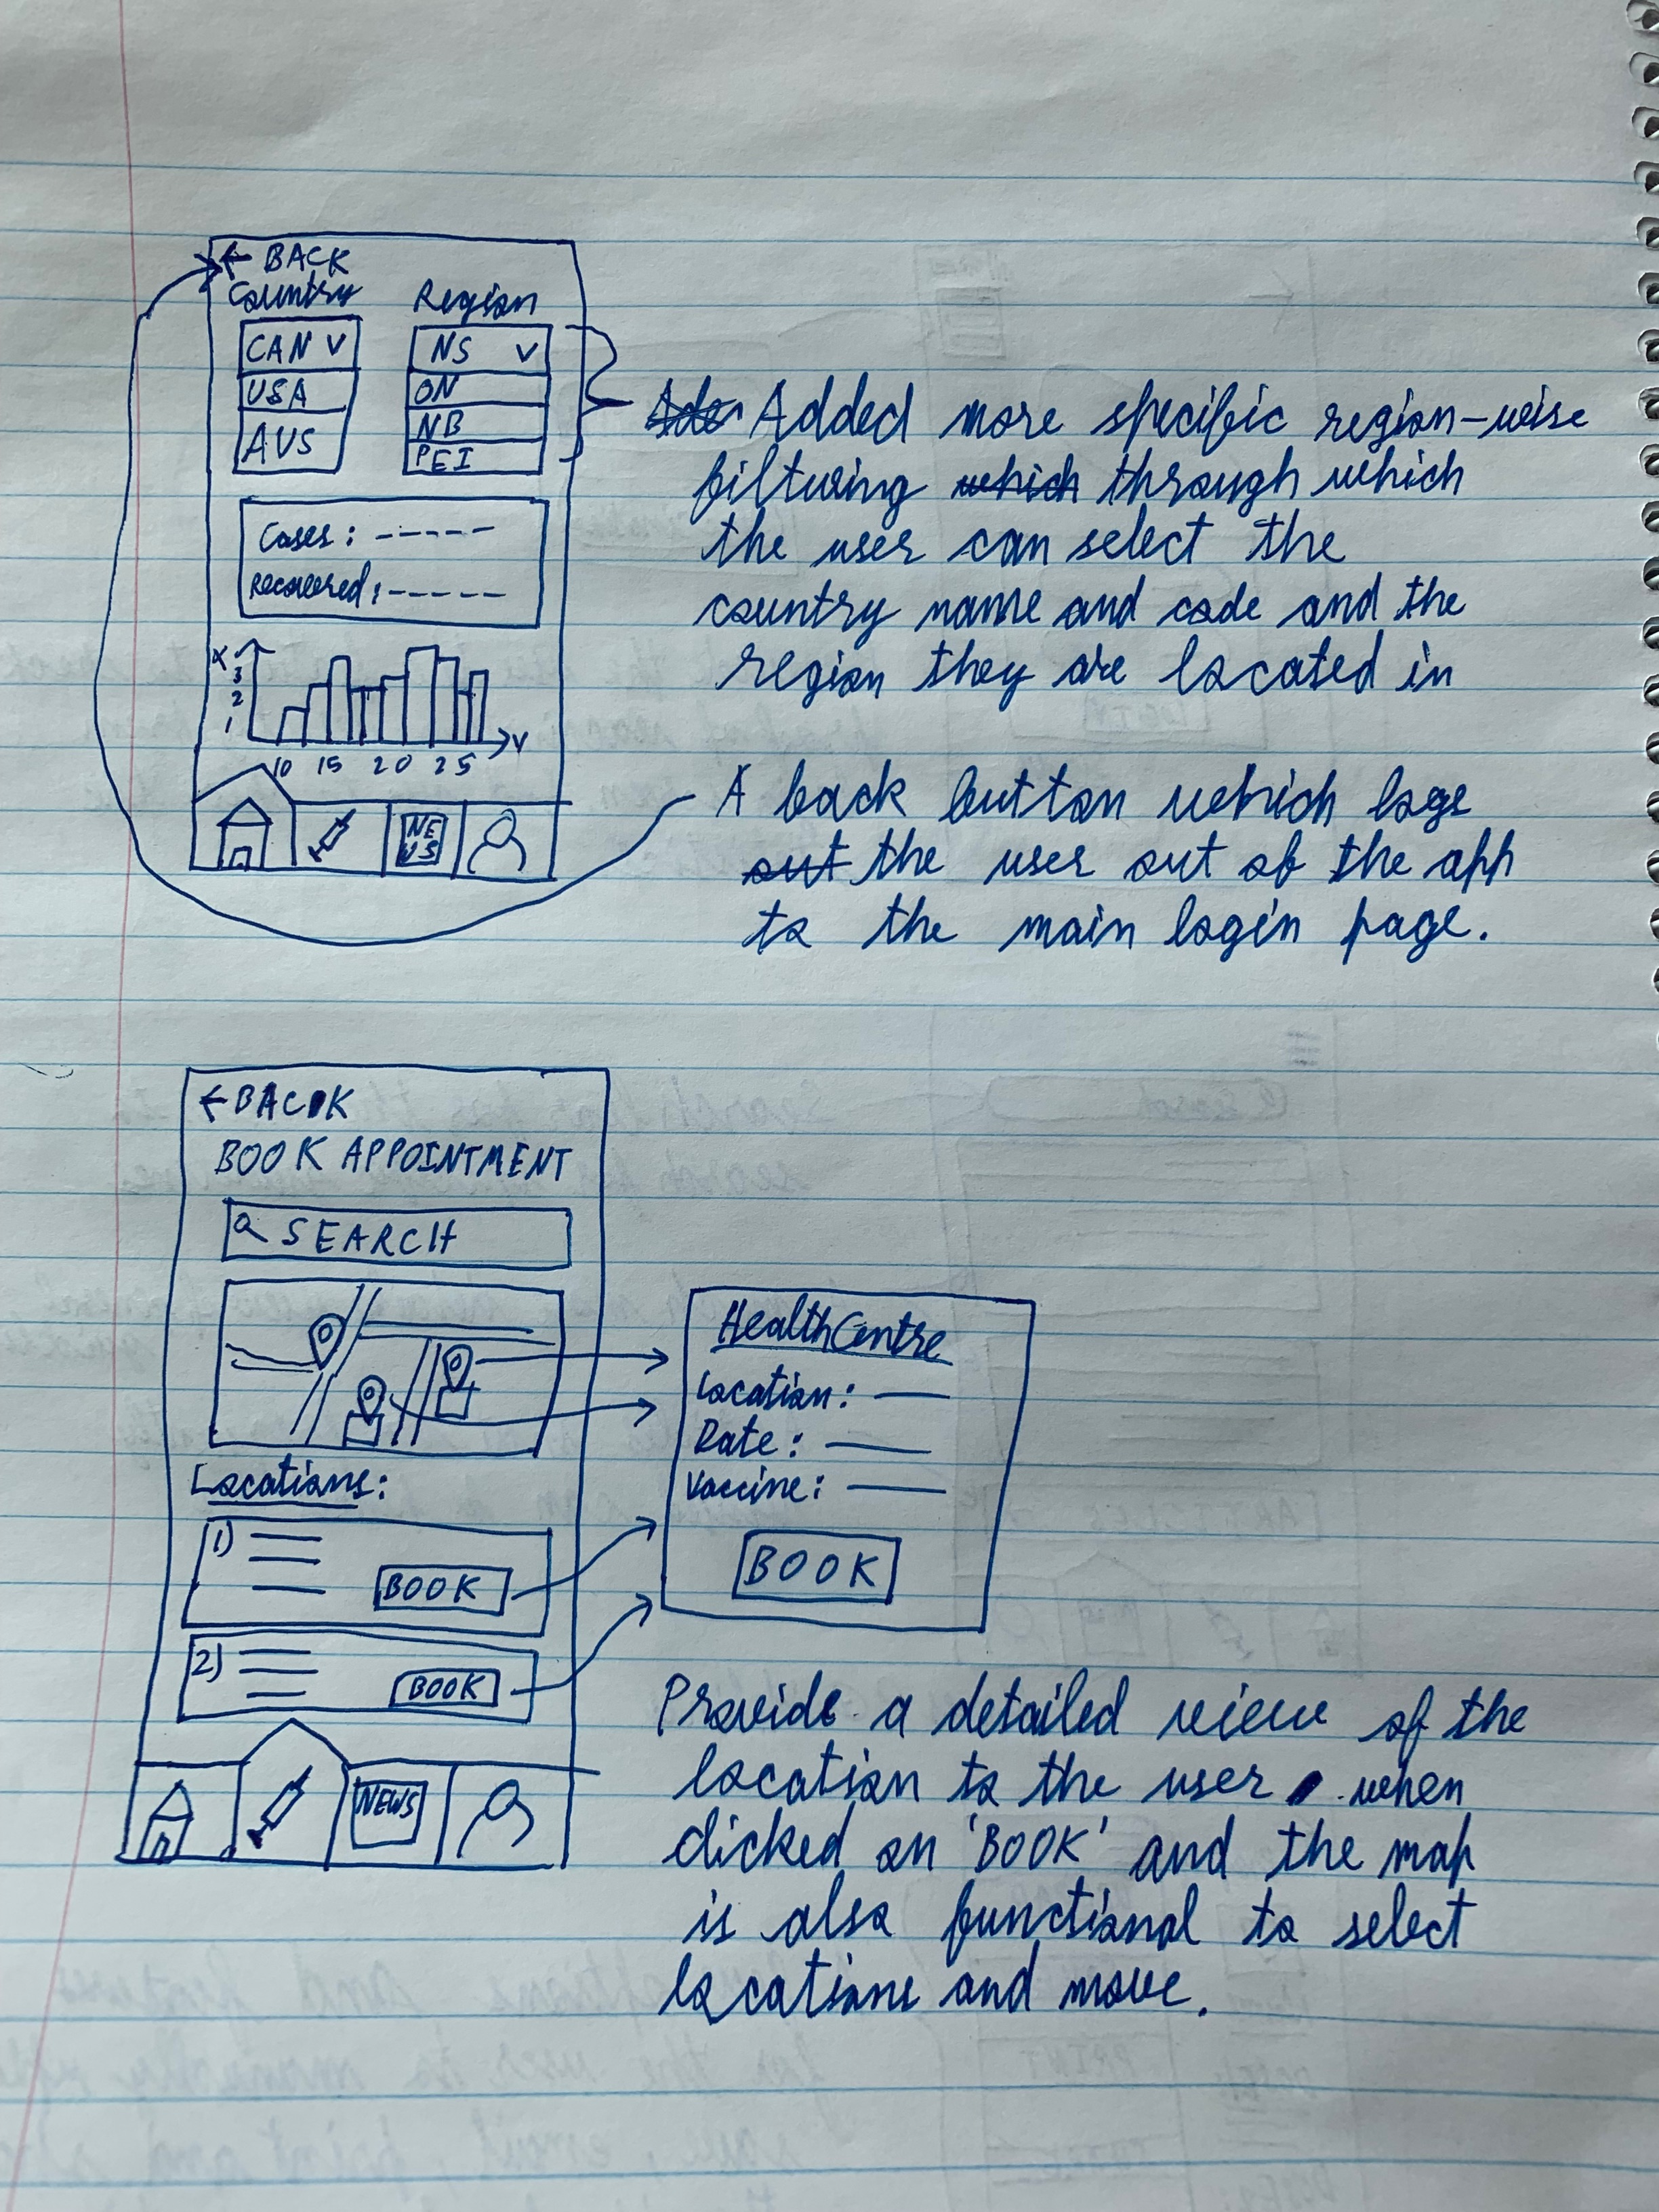 ← BACK
Country Region
CAN ∨ NS ∨
USA ON
AUS NB
PEI
Cases: -----
Recovered: -----
X
3
2
1
Y
10 15 20 25
NE
WS
Added more specific region-wise
filturing which through which
the user can select the
country name and code and the
region they are located in
A back button which logs
out the user out of the app
to the main login page.
← BACK
BOOK APPOINTMENT
SEARCH
Locations:
1)
BOOK
2)
BOOK
NEWS
Health Centre
Location:
Date:
Vaccine:
BOOK
Provide a detailed view of the
location to the user when
clicked on 'BOOK' and the map
is also functional to select
locations and move.